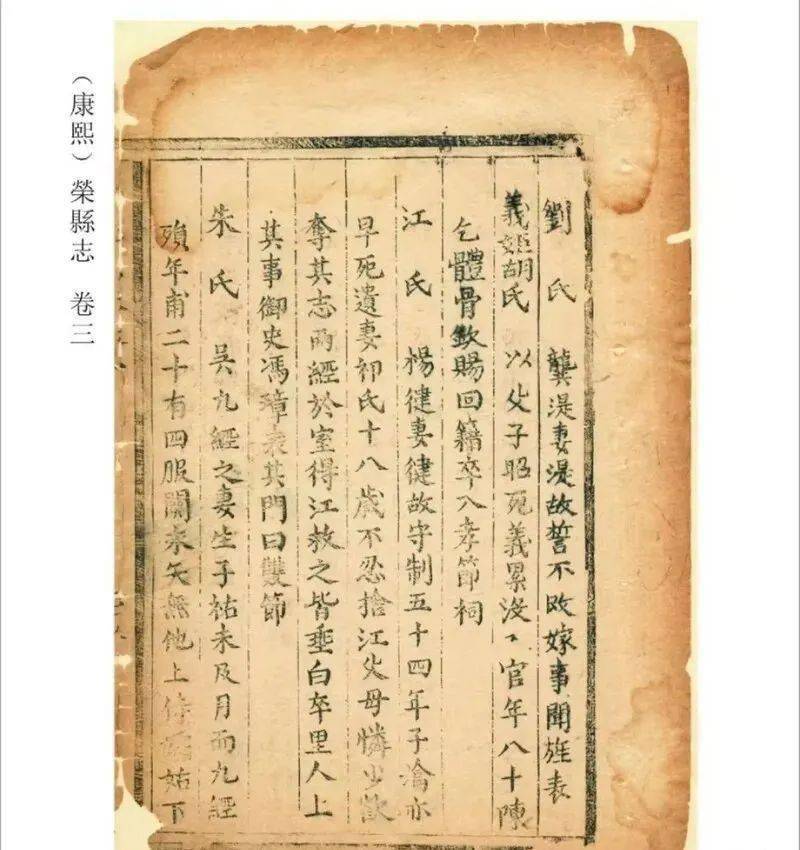 劉氏 龔湜妻湜故誓不改嫁事聞旌表
義姬胡氏 以父子昭死義累没官年八十陳
乞體骨欽賜回籍卒入孝節祠
江氏 楊健妻健故守制五十四年子瀹亦
早死遺妻祁氏十八歲不忍捨江父母憐少欲
奪其志兩經於室得江救之皆垂白卒里人上
其事御史馮璋表其門曰雙節
朱氏 吳九經之妻生子祐未及月而九經
殞年甫二十有四服闋永矢無他上侍姑下
(康熙)榮縣志 卷三